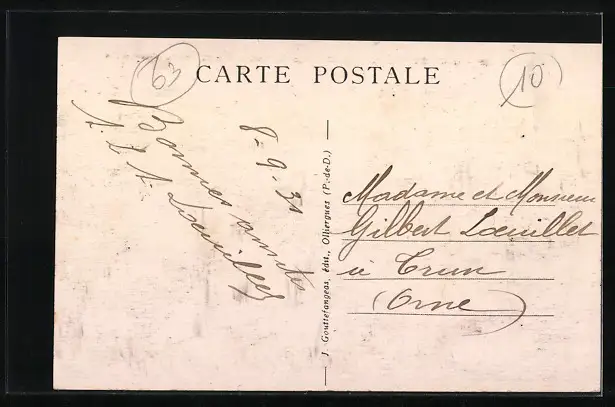 63
10
CARTE POSTALE
8-9-31
Bonnes amitiés
A. L. Lœuillet
J. Gouttefangeas, édit., Olliergues (P.-de-D.)
Madame et Monsieur
Gilbert Lœuillet
à Trun
(Orne)